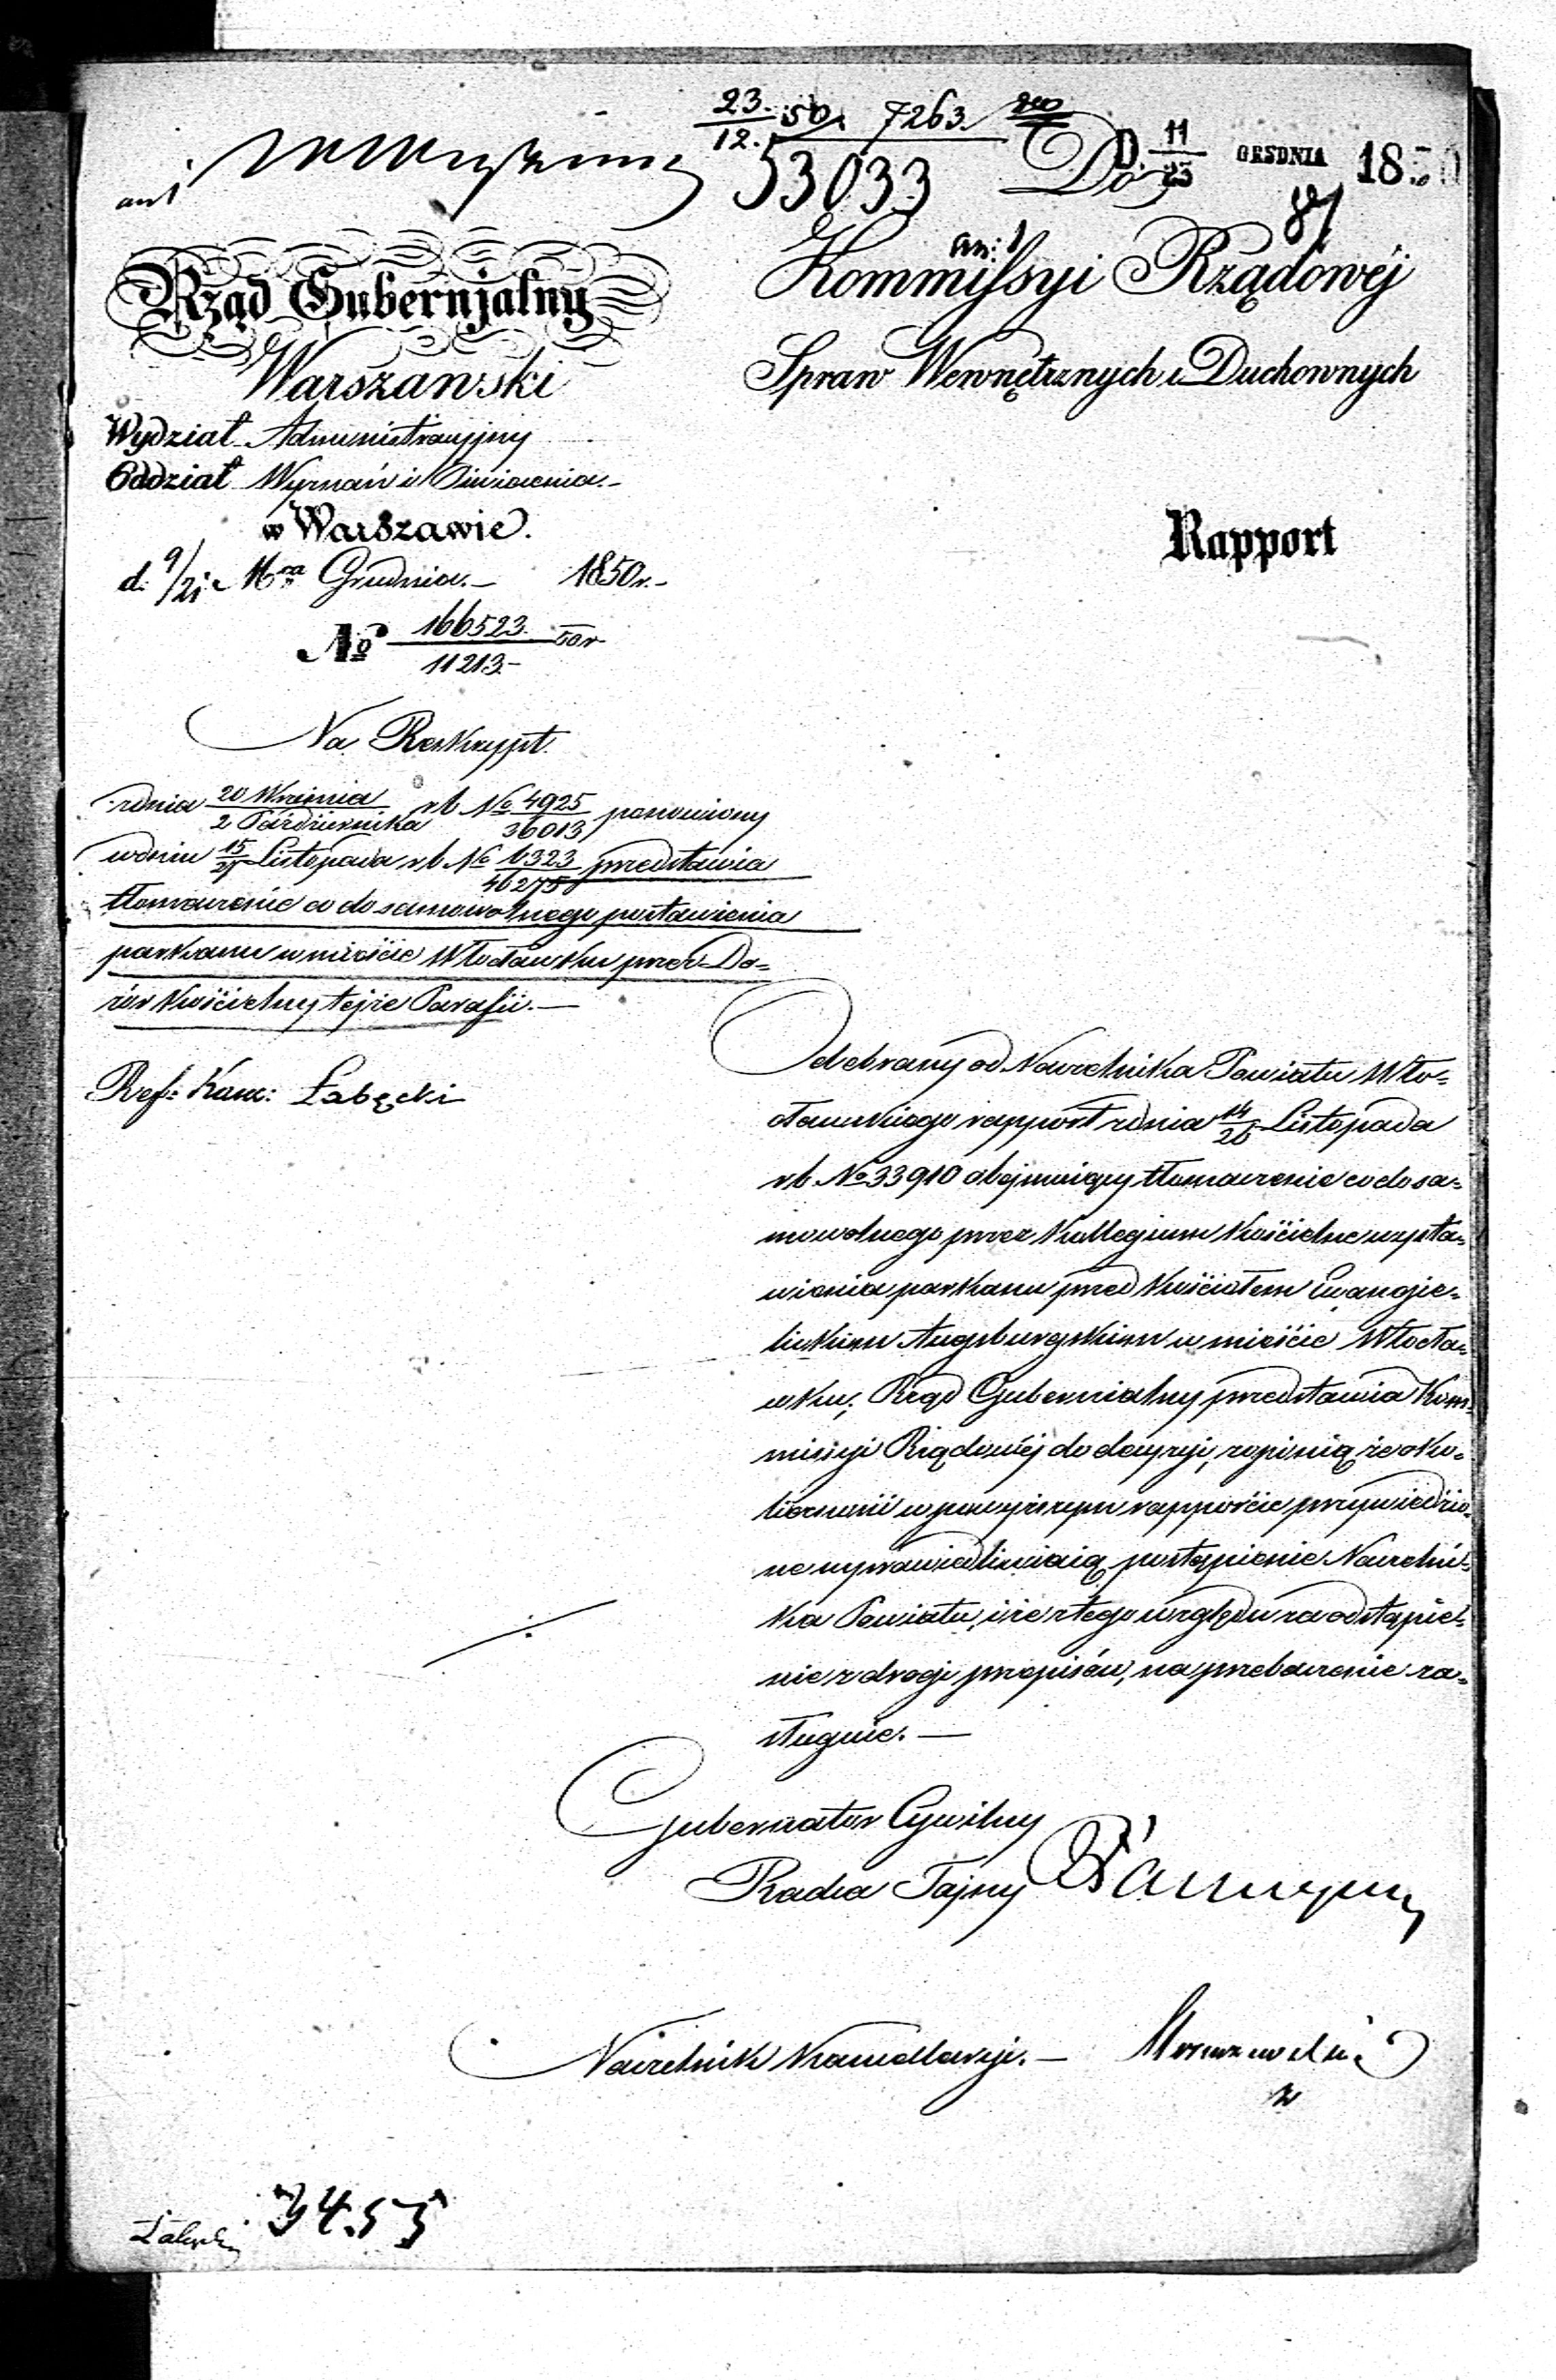 23/12 50 7263
53033
D. 11/23 GRUDNIA 1850
ant
Do
87
Rząd Gubernjalny
Warszawski
Wydział Administracyjny
Oddział Wyznań i Oświecenia.-
w Warszawie.
d. 9/21 Mca Grudnia.- 1850 r.-
No 166523/11213 50 r
Kommissyi Rządowéj
Spraw Wewnętrznych i Duchownych
Rapport
Na Reskrypt
z dnia 20 Września/2 Października r b No 4925/36013 ponowiony
w dniu 15/27 Listopada r b No 6323/46275 przedstawia
tłomaczenie co do samowolnego postawienia
parkanu w mieście Włocławku przez Do=
zór Kościelny tejże Parafii.-
Ref: Kanc: Łabęcki
Odebrany od Naczelnika Powiatu Wło=
cławskiego rapport z dnia 14/26 Listopada
r b No 33910 obejmuiący tłomaczenie co do sa=
mowolnego przez Kollegium Kościelne wysta=
wienia parkanu przed Kościołem Ewangie=
lickim Augsburgskim w mieście Włocła=
wku; Rząd Gubernialny przedstawia Kom=
missyi Rządowéj do decyzyi, z opinią że oko=
liczności w powyższym rapporcie przywiedzio=
ne usprawiedliwiaią postąpienie Naczelni=
ka Powiatu, i że z tego względu za odstąpie=
nie z drogi przepisów, na przebaczenie za=
sługuie.-
Gubernator Cywilny
Radca Tajny
Naczelnik Kancellaryi.-
34.53